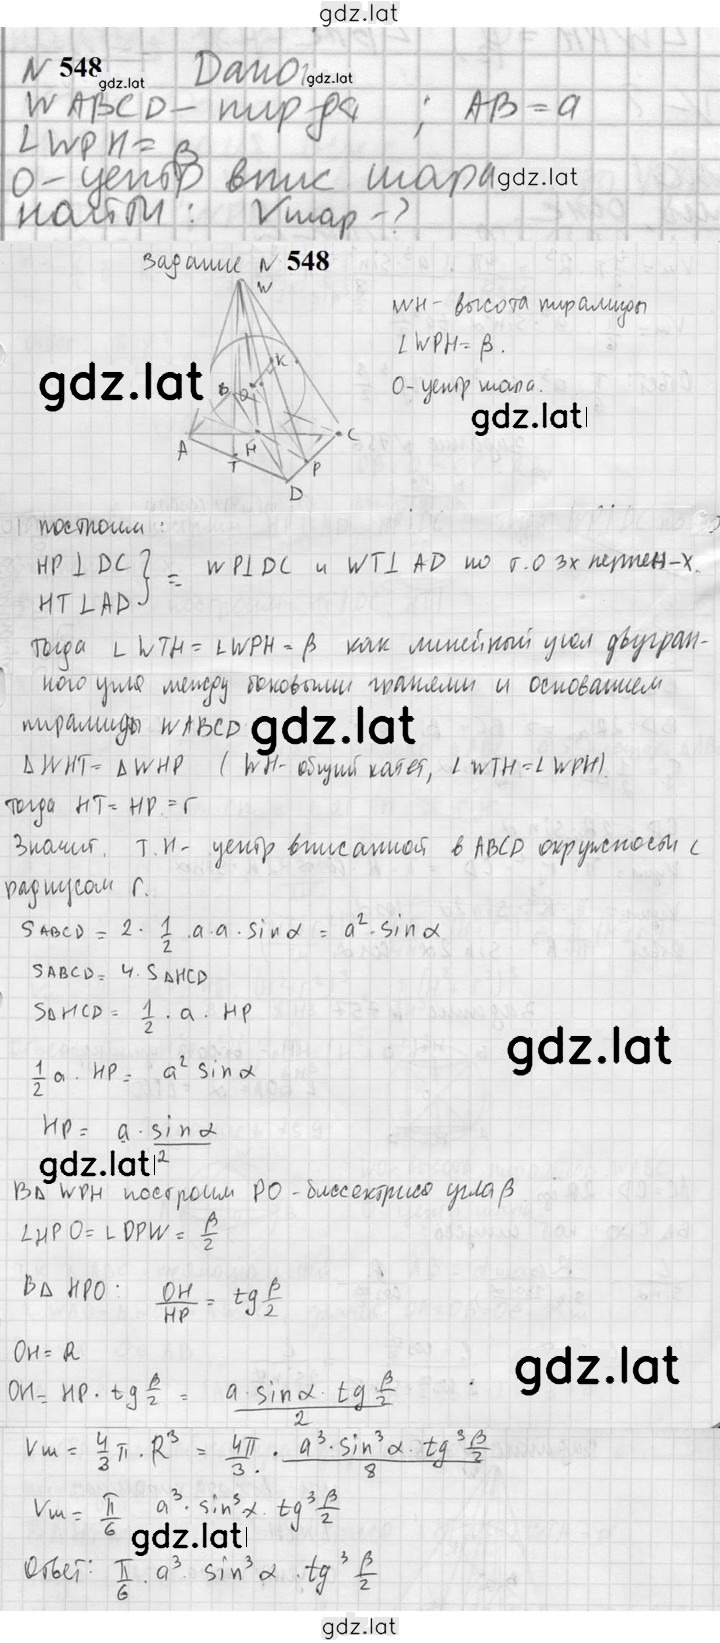 gdz.lat
N 548 gdz.lat Дано: gdz.lat
WABCD - пирда ; AB = a
∠WPH = β
O - центр впис шара gdz.lat
найти: Vшар - ?
Задание N 548
W
K
B
O
A
H
C
T
P
D
WH - высота пирамиды
∠WPH = β.
O - центр шара.
gdz.lat
gdz.lat
построим:
HP ⊥ DC
HT ⊥ AD } = WP ⊥ DC и WT ⊥ AD по т. о 3х перпен-х.
тогда ∠WTH = ∠WPH = β как линейный угол двугран-
ного угла между боковыми гранями и основанием
пирамиды WABCD gdz.lat
ΔWHT = ΔWHP ( WH - общий катет, ∠WTH = ∠WPH).
тогда HT = HP = r
Значит, т. H - центр вписанной в ABCD окружности с
радиусом r.
SABCD = 2 · 1/2 · a · a · sin α = a² · sin α
SABCD = 4 · SΔHCD
SΔHCD = 1/2 · a · HP
gdz.lat
1/2 a · HP = a² sin α
HP = a · sin α / 2
gdz.lat
В Δ WPH построим PO - биссектриса угла β
∠HPO = ∠DPW = β/2
В Δ HPO: OH/HP = tg β/2
OH = R
gdz.lat
OH = HP · tg β/2 = a · sin α · tg β/2 / 2
Vш = 4/3 π · R³ = 4π/3 · a³ · sin³ α · tg³ β/2 / 8
Vш = π/6 a³ · sin³ α · tg³ β/2
gdz.lat
Ответ: π/6 · a³ · sin³ α · tg³ β/2
gdz.lat